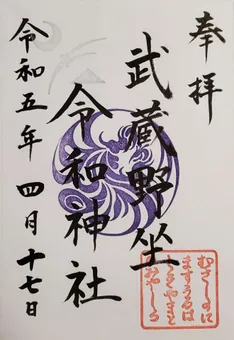 奉拝
武蔵野坐
令和神社
令和五年 四月十七日
むさしのに
ますうるは
しきやまと
みやしろ